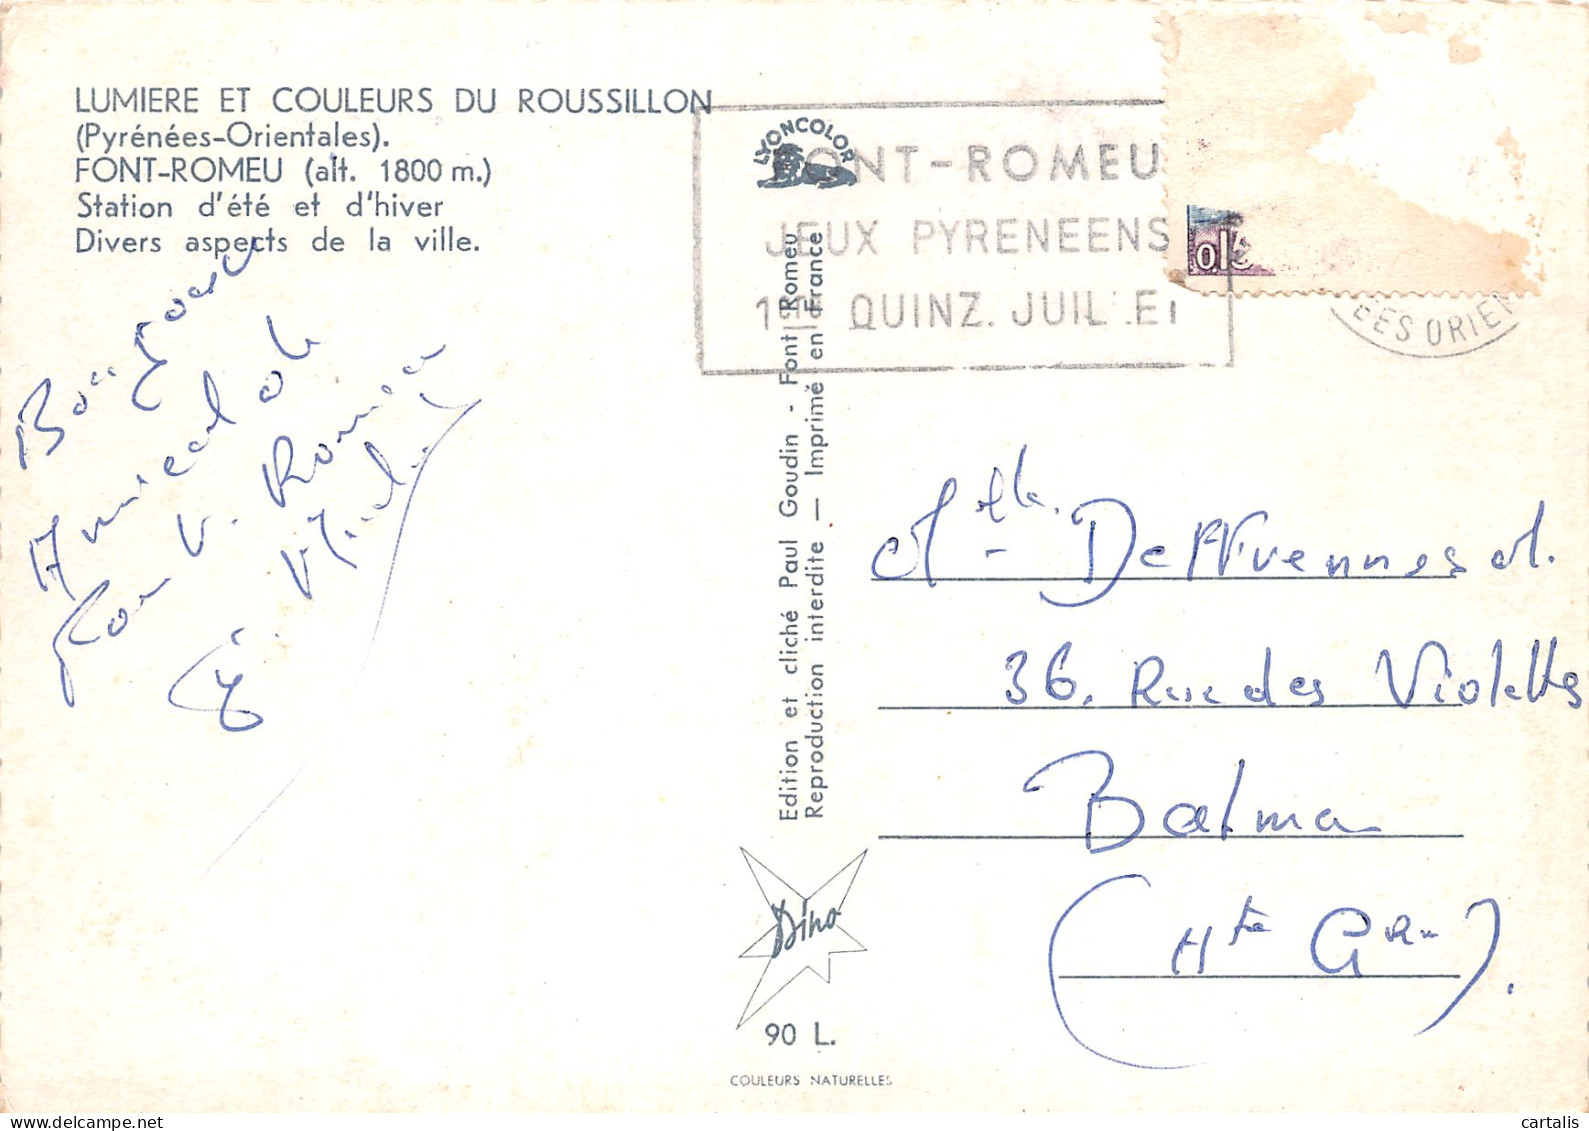 LUMIERE ET COULEURS DU ROUSSILLON
(Pyrénées-Orientales).
FONT-ROMEU (alt. 1800 m.)
Station d'été et d'hiver
Divers aspects de la ville.
LYONCOLOR
FONT-ROMEU
JEUX PYRENEENS
QUINZ. JUILLET
EES ORIEN
Font V. Romeu
Edition et cliché Paul Goudin - Font Romeu
Reproduction interdite — Imprimé en France
36. Rue des Violettes
Balma
(Hte Gar).
Dino
90 L.
COULEURS NATURELLES
cartalis